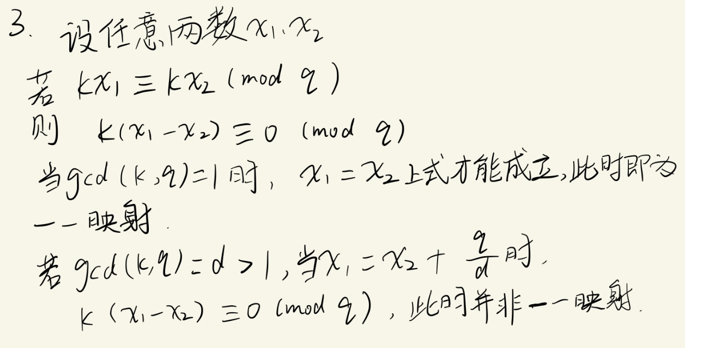 3. 设任意两数x₁、x₂
若 kx₁ ≡ kx₂ (mod q)
则 k(x₁-x₂) ≡ 0 (mod q)
当gcd(k,q)=1时, x₁=x₂上式才能成立,此时即为
一一映射.
若 gcd(k,q)=d>1,当x₁=x₂+q/d时,
k(x₁-x₂)≡0 (mod q), 此时并非一一映射.